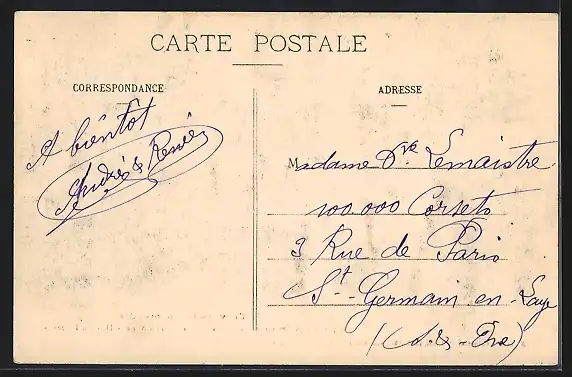 CARTE POSTALE
CORRESPONDANCE
A bientôt
André & Renée
ADRESSE
Madame Vve Lemaistre
100.000 Corsets
3 Rue de Paris
St Germain en-Laye
(S.&-Oise)